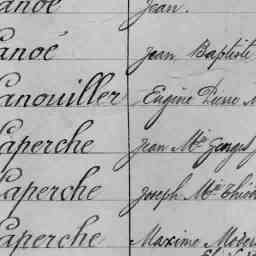 anoé Jean.
anoé Jean Baptiste
anouiller Eugène Pierre M
Laperche Jean Mie Georges
Laperche Joseph Mie Théod
Laperche Maxime Moder